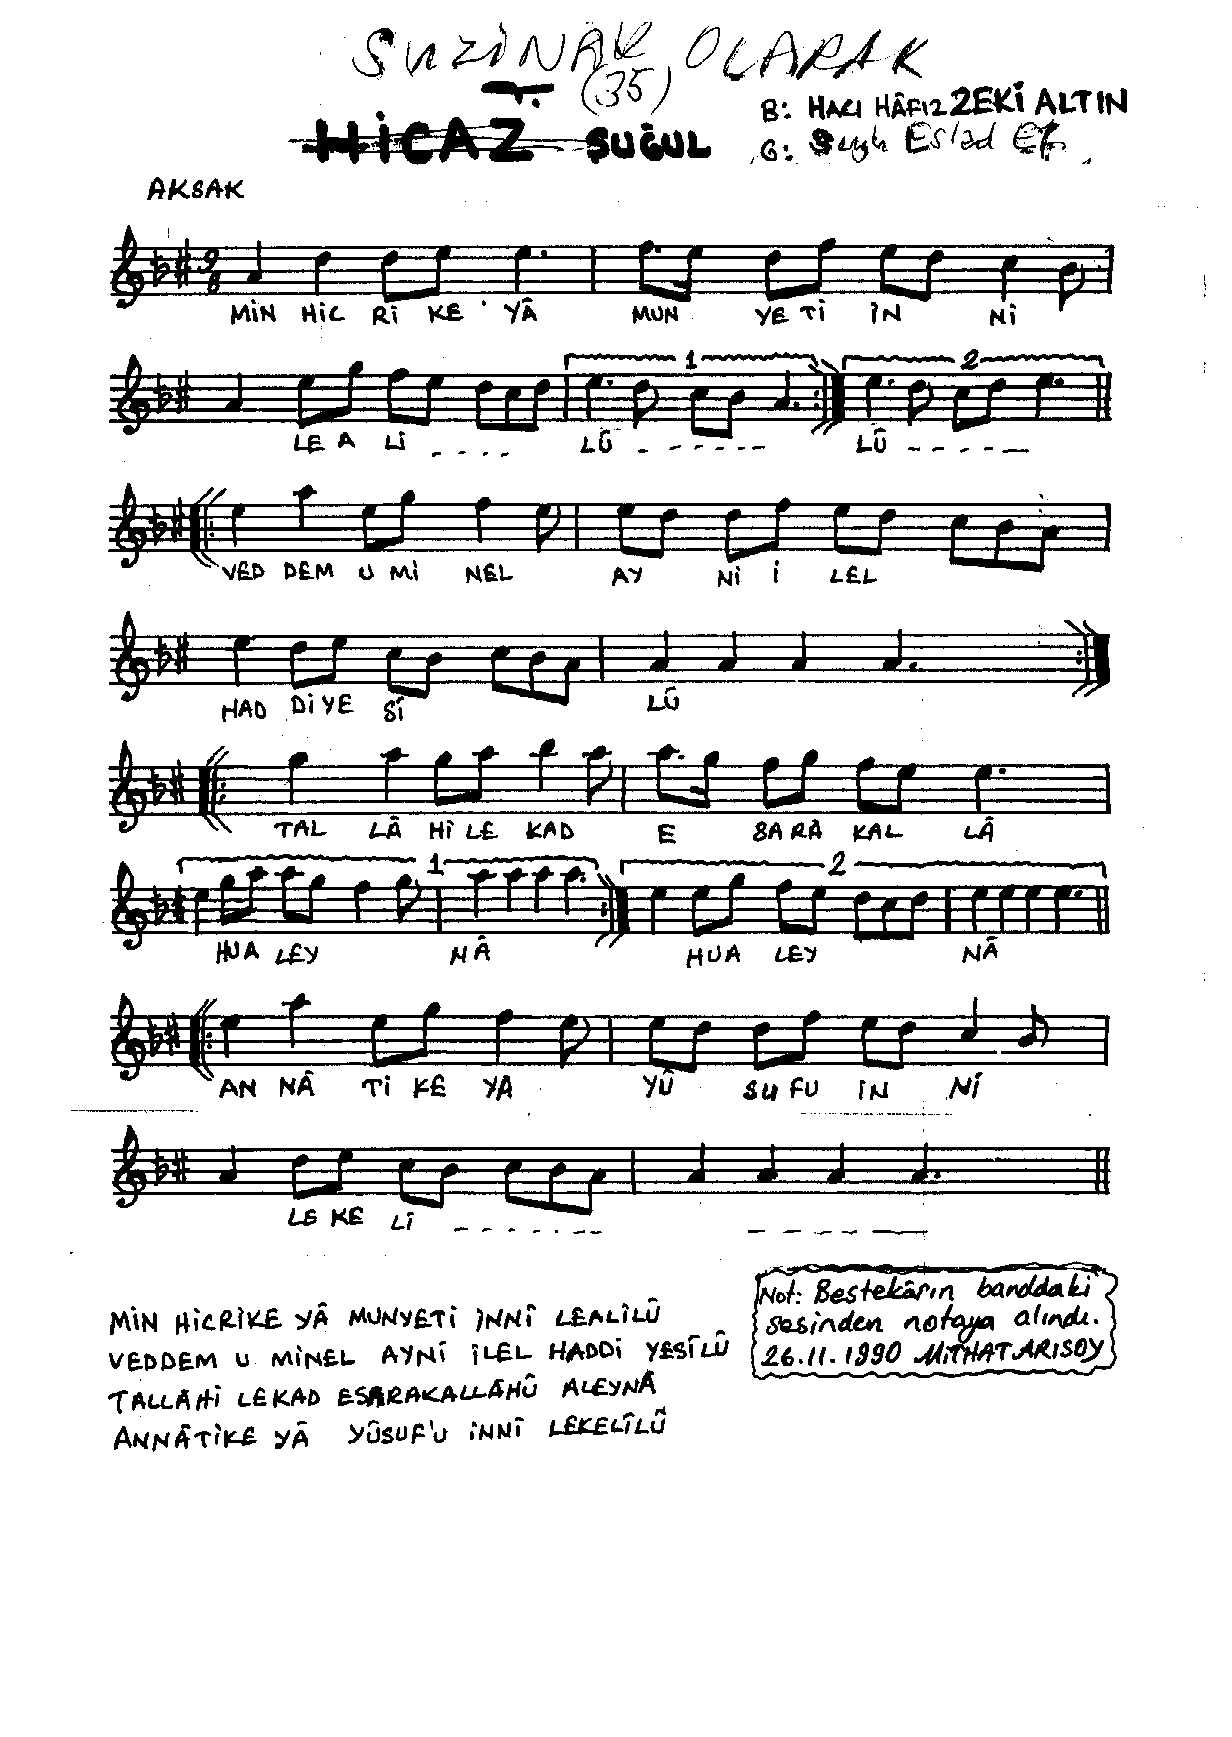 SUZİNAK OLARAK
(35)
HİCAZ SUĞUL
B: HACI HÂFIZ ZEKİ ALTIN
G: Şeyh Es'ad Ef.
AKSAK
9/8
MİN HİC Rİ KE YÂ MUN YE Tİ İN Nİ
1 2
LE A Lİ _ _ _ _ LÛ - - - - - - LÛ - - - - -
VED DEM U Mİ NEL AY Nİ İ LEL
HAD Dİ YE Sİ LÛ
TAL LÂ Hİ LE KAD E SA RA KAL LÂ
1 2
HU A LEY NÂ HU A LEY NÂ
AN NÂ Tİ KE YA YÛ SU FU İN Nİ
LE KE Lİ _ _ _ _ _ _ _ _ _ _
MİN HİCRİKE YÂ MUNYETİ İNNÎ LEALÎLÛ
VEDDEM U MİNEL AYNÎ İLEL HADDİ YESÎLÛ
TALLÂHİ LEKAD ESARAKALLÂHÛ ALEYNÂ
ANNÂTİKE YÂ YÛSUF'U İNNÎ LEKELÎLÛ
Not: Bestekârın banddaki
sesinden notaya alındı.
26.11.1990 MİTHAT ARISOY